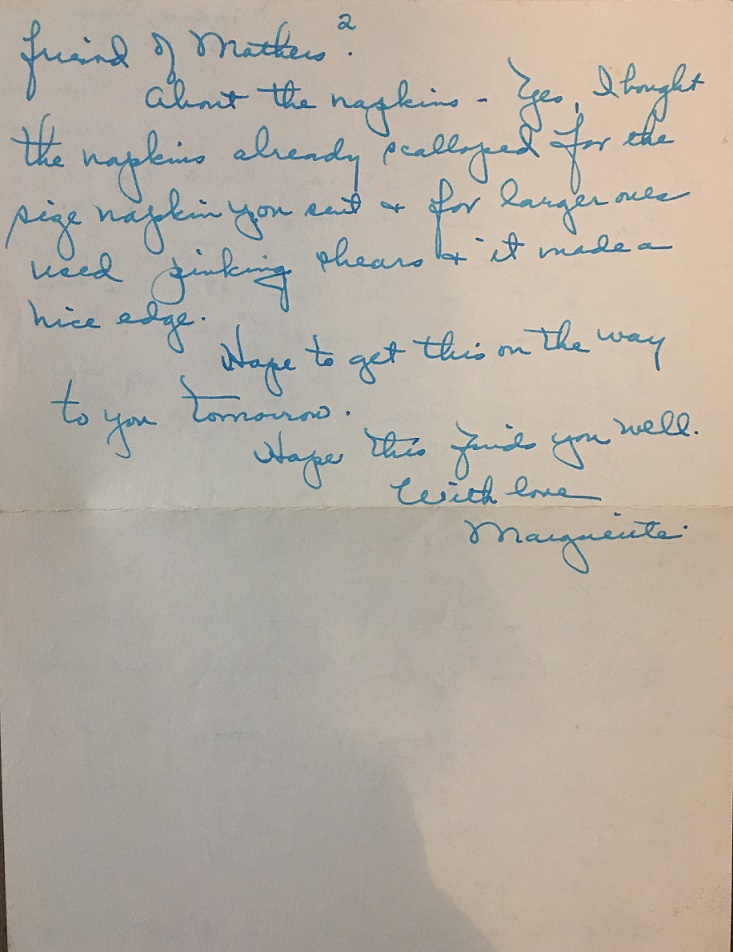 2
friend of Mothers.
About the napkins - Yes, I bought
the napkins already scalloped for the
size napkin you sent + for larger ones
used pinking shears + it made a
nice edge.
Hope to get this on the way
to you tomorrow.
Hope this finds you well.
With love
Marguerite